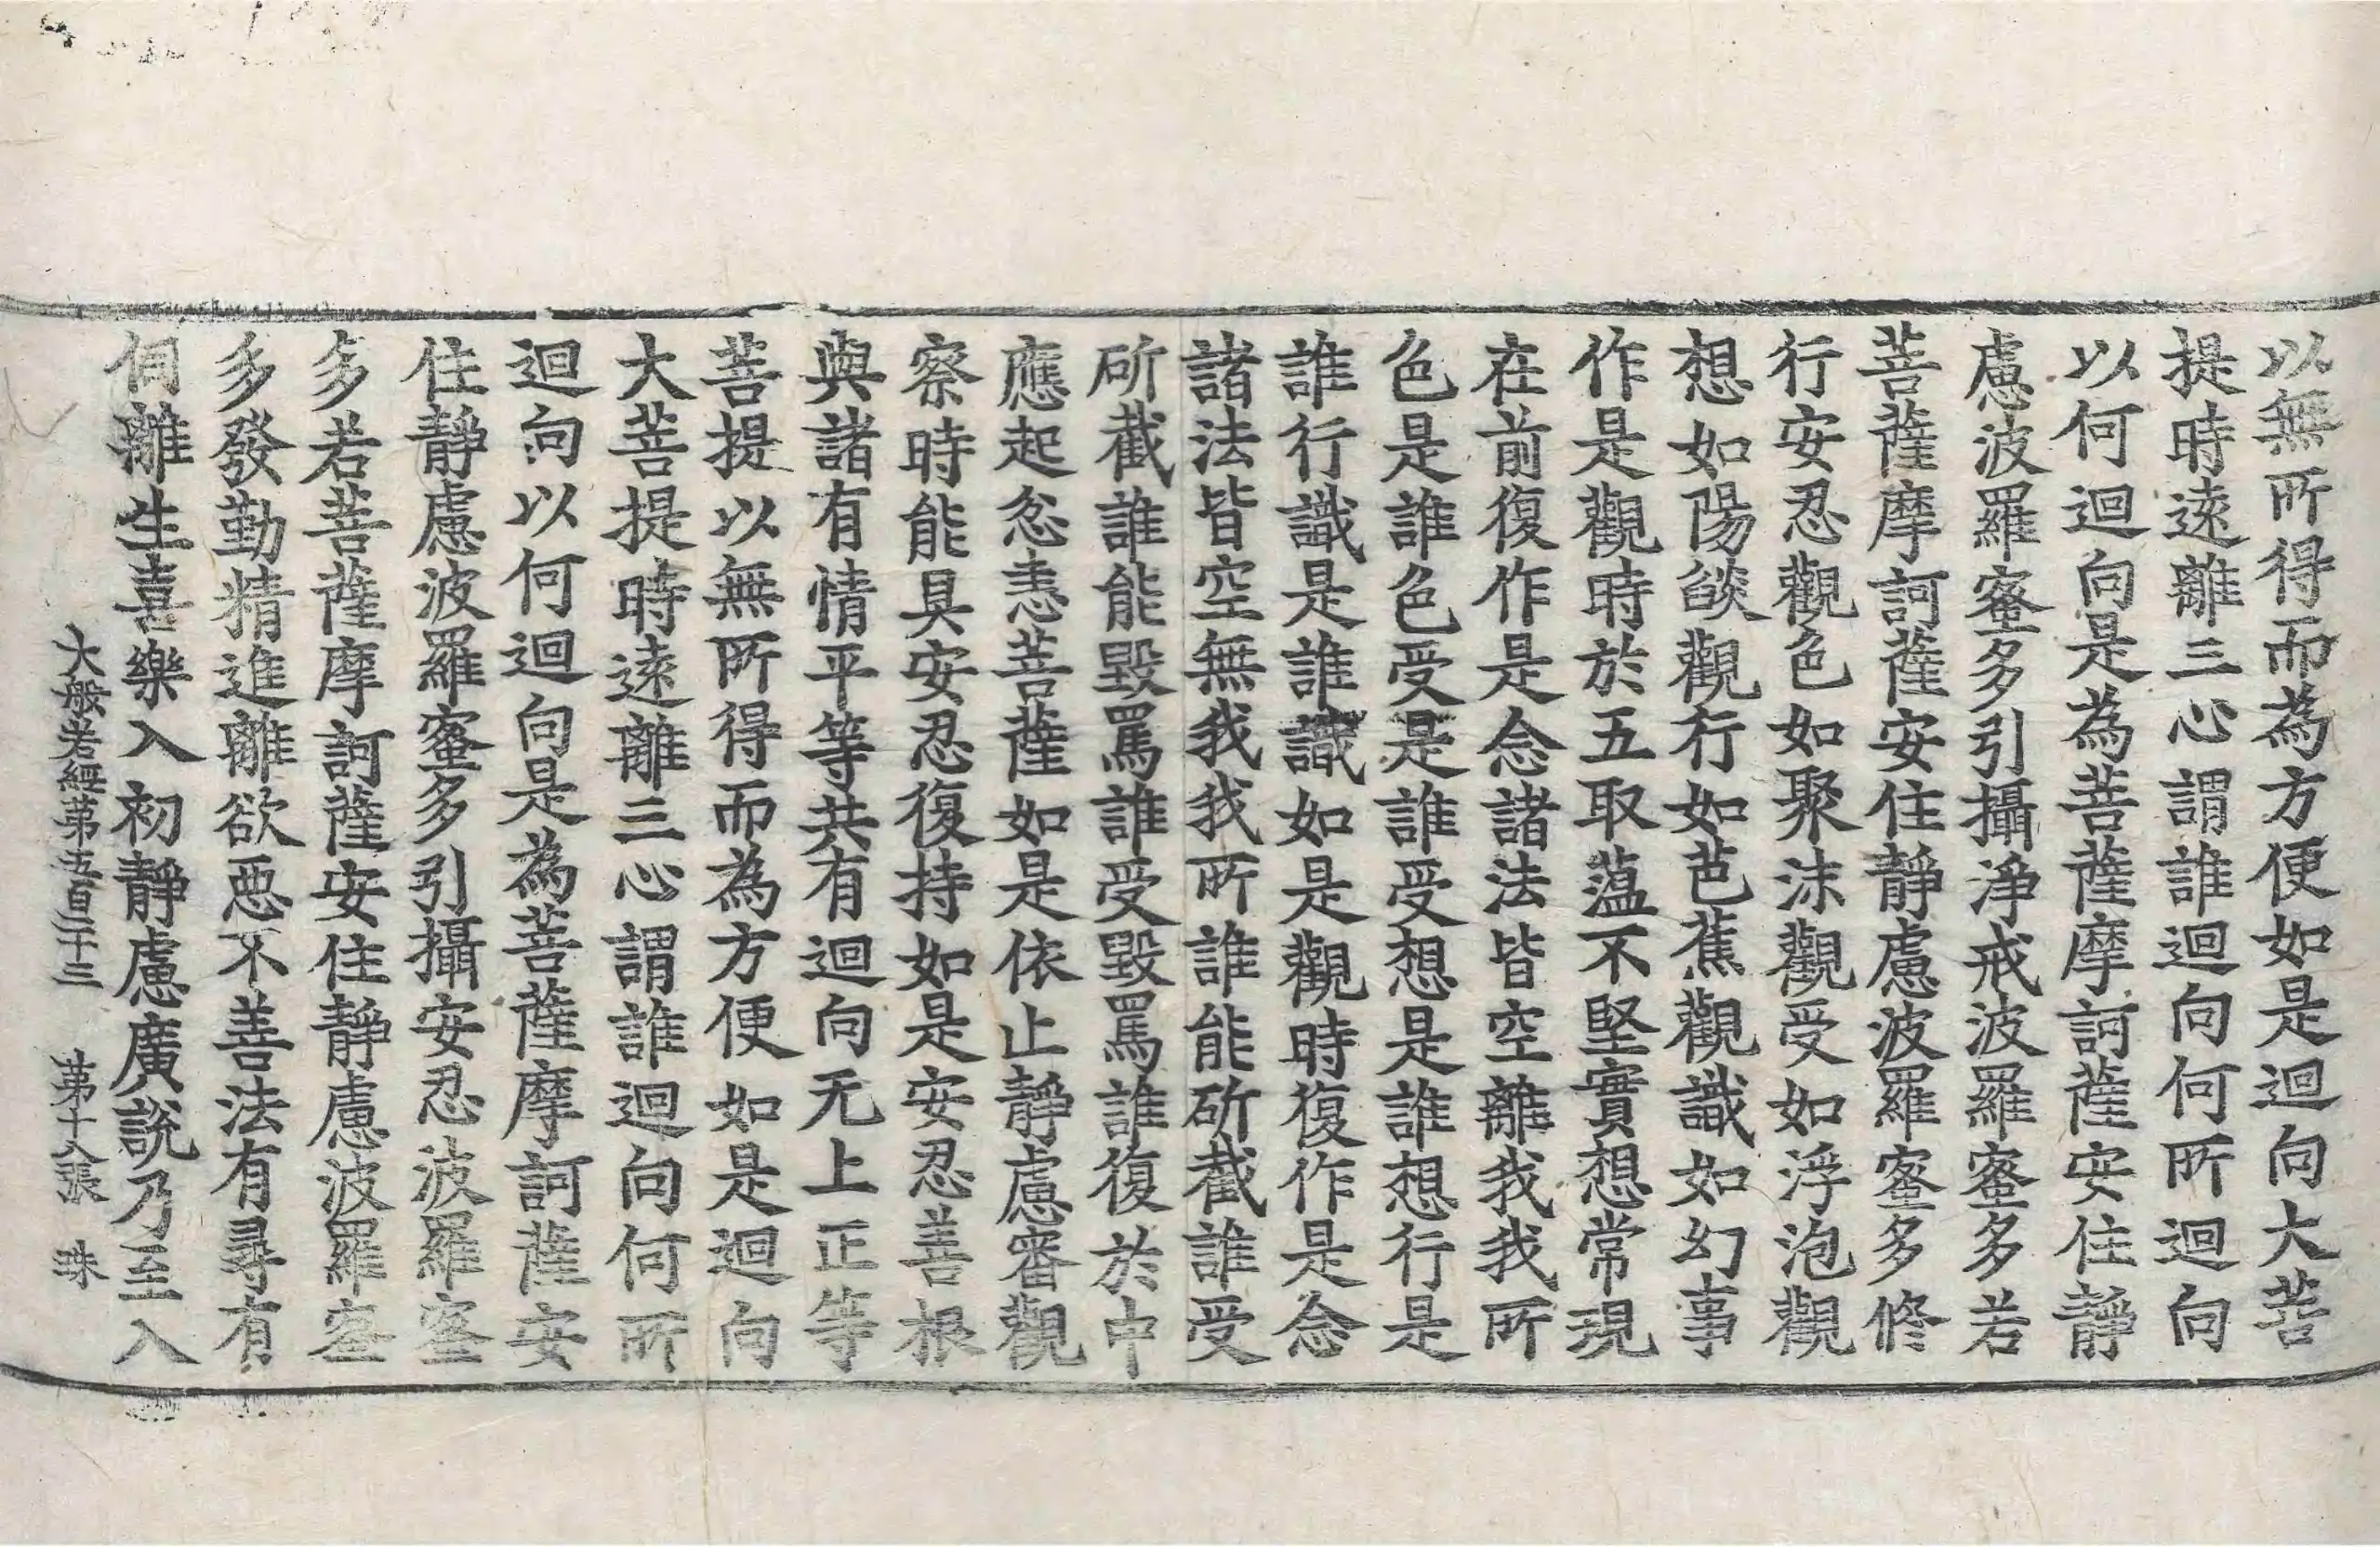 以無所得而為方便如是迴向大菩
提時遠離三心謂誰迴向何所迴向
以何迴向是為菩薩摩訶薩安住靜
慮波羅蜜多引攝淨戒波羅蜜多若
菩薩摩訶薩安住靜慮波羅蜜多修
行安忍觀色如聚沫觀受如浮泡觀
想如陽燄觀行如芭蕉觀識如幻事
作是觀時於五取蘊不堅實想常現
在前復作是念諸法皆空離我我所
色是誰色受是誰受想是誰想行是
誰行識是誰識如是觀時復作是念
諸法皆空無我我所誰能斫截誰受
斫截誰能毀罵誰受毀罵誰復於中
應起忿恚菩薩如是依止靜慮審觀
察時能具安忍復持如是安忍善根
與諸有情平等共有迴向无上正等
菩提以無所得而為方便如是迴向
大菩提時遠離三心謂誰迴向何所
迴向以何迴向是為菩薩摩訶薩安
住靜慮波羅蜜多引攝安忍波羅蜜
多若菩薩摩訶薩安住靜慮波羅蜜
多發勤精進離欲惡不善法有尋有
伺離生喜樂入初靜慮廣說乃至入
大般若經第五百二十三 第十八張 珠